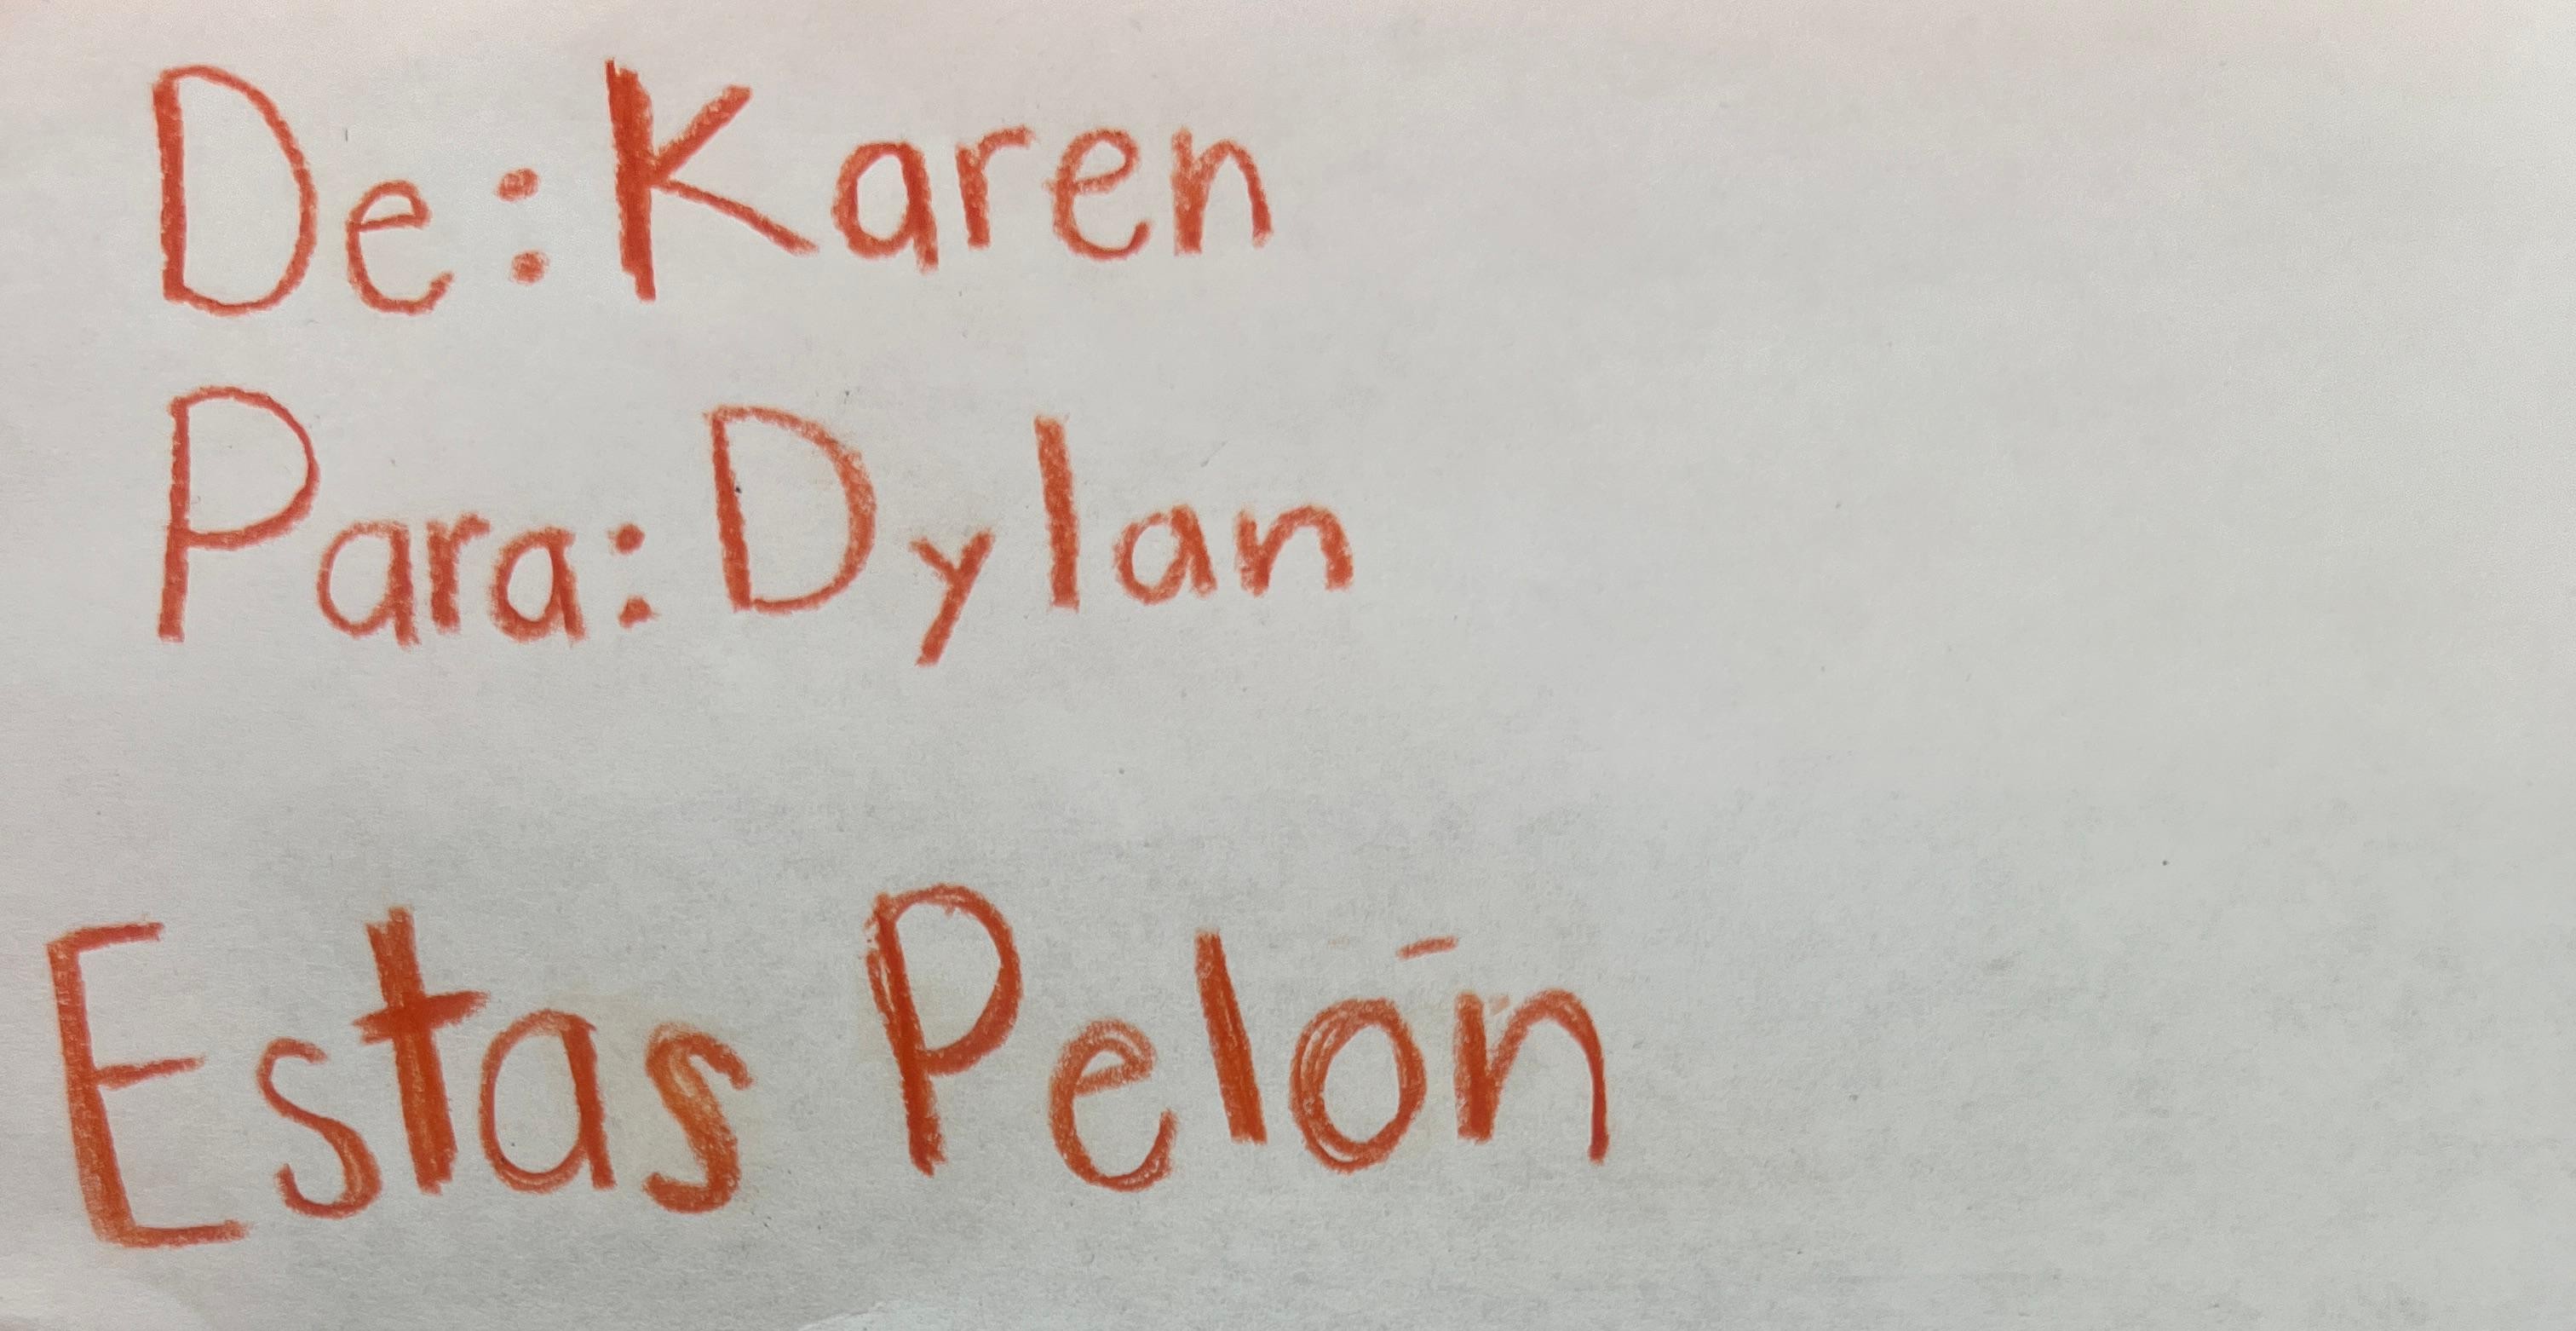 De: Karen
Para: Dylan
Estas Pelón